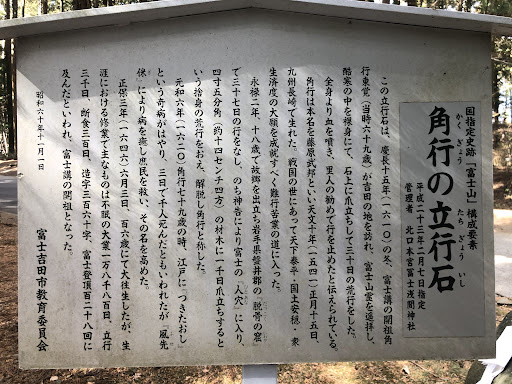 国指定史跡「富士山」構成要素
角行の立行石
かくぎょう たちぎょう いし
平成二十三年二月七日指定
管理者 北口本宮冨士浅間神社
この立行石は、慶長十五年（一六一〇）の冬、富士講の開祖角
行東覚（当時六十九歳）が吉田の地を訪れ、富士山霊を遥拝し、
酷寒の中を裸身にて、石上に爪立ちして三十日の荒行をした。
全身より血を噴き、里人の勧めで行を止めたと伝えられている。
角行は本名を藤原武邦といい天文十年（一五四一）正月十五日、
九州長崎で生れた。戦国の世にあって天下泰平・国土安穏・衆
生済度の大願を成就すべく難行苦業の道に入った。
永禄二年、十八歳で故郷を出立ち岩手県磐井郡の「脱骨の窟」
で三十七日の行をなし、のち神告により富士の「人穴」に入り、
四寸五分角（約十四センチ四方）の材木に一千日爪立ちすると
いう捨身の荒行をおえ、解脱し角行と称した。
元和六年（一六二〇）角行七十九歳の時、江戸に「つきたおし」
という奇病がはやり、三日で千人死んだともいわれたが「風先
侎」により病を癒し庶民を救い、その名を高めた。
正保三年（一六四六）六月三日、百六歳にて大往生したが、生
涯における修業で主なものは不眠の大業一万八千八百日、立行
三千日、断食三百日、造字三百六十字、富士登頂百二十八回に
及んだといわれ、富士講の開祖となった。
昭和六十年十一月一日
富士吉田市教育委員会